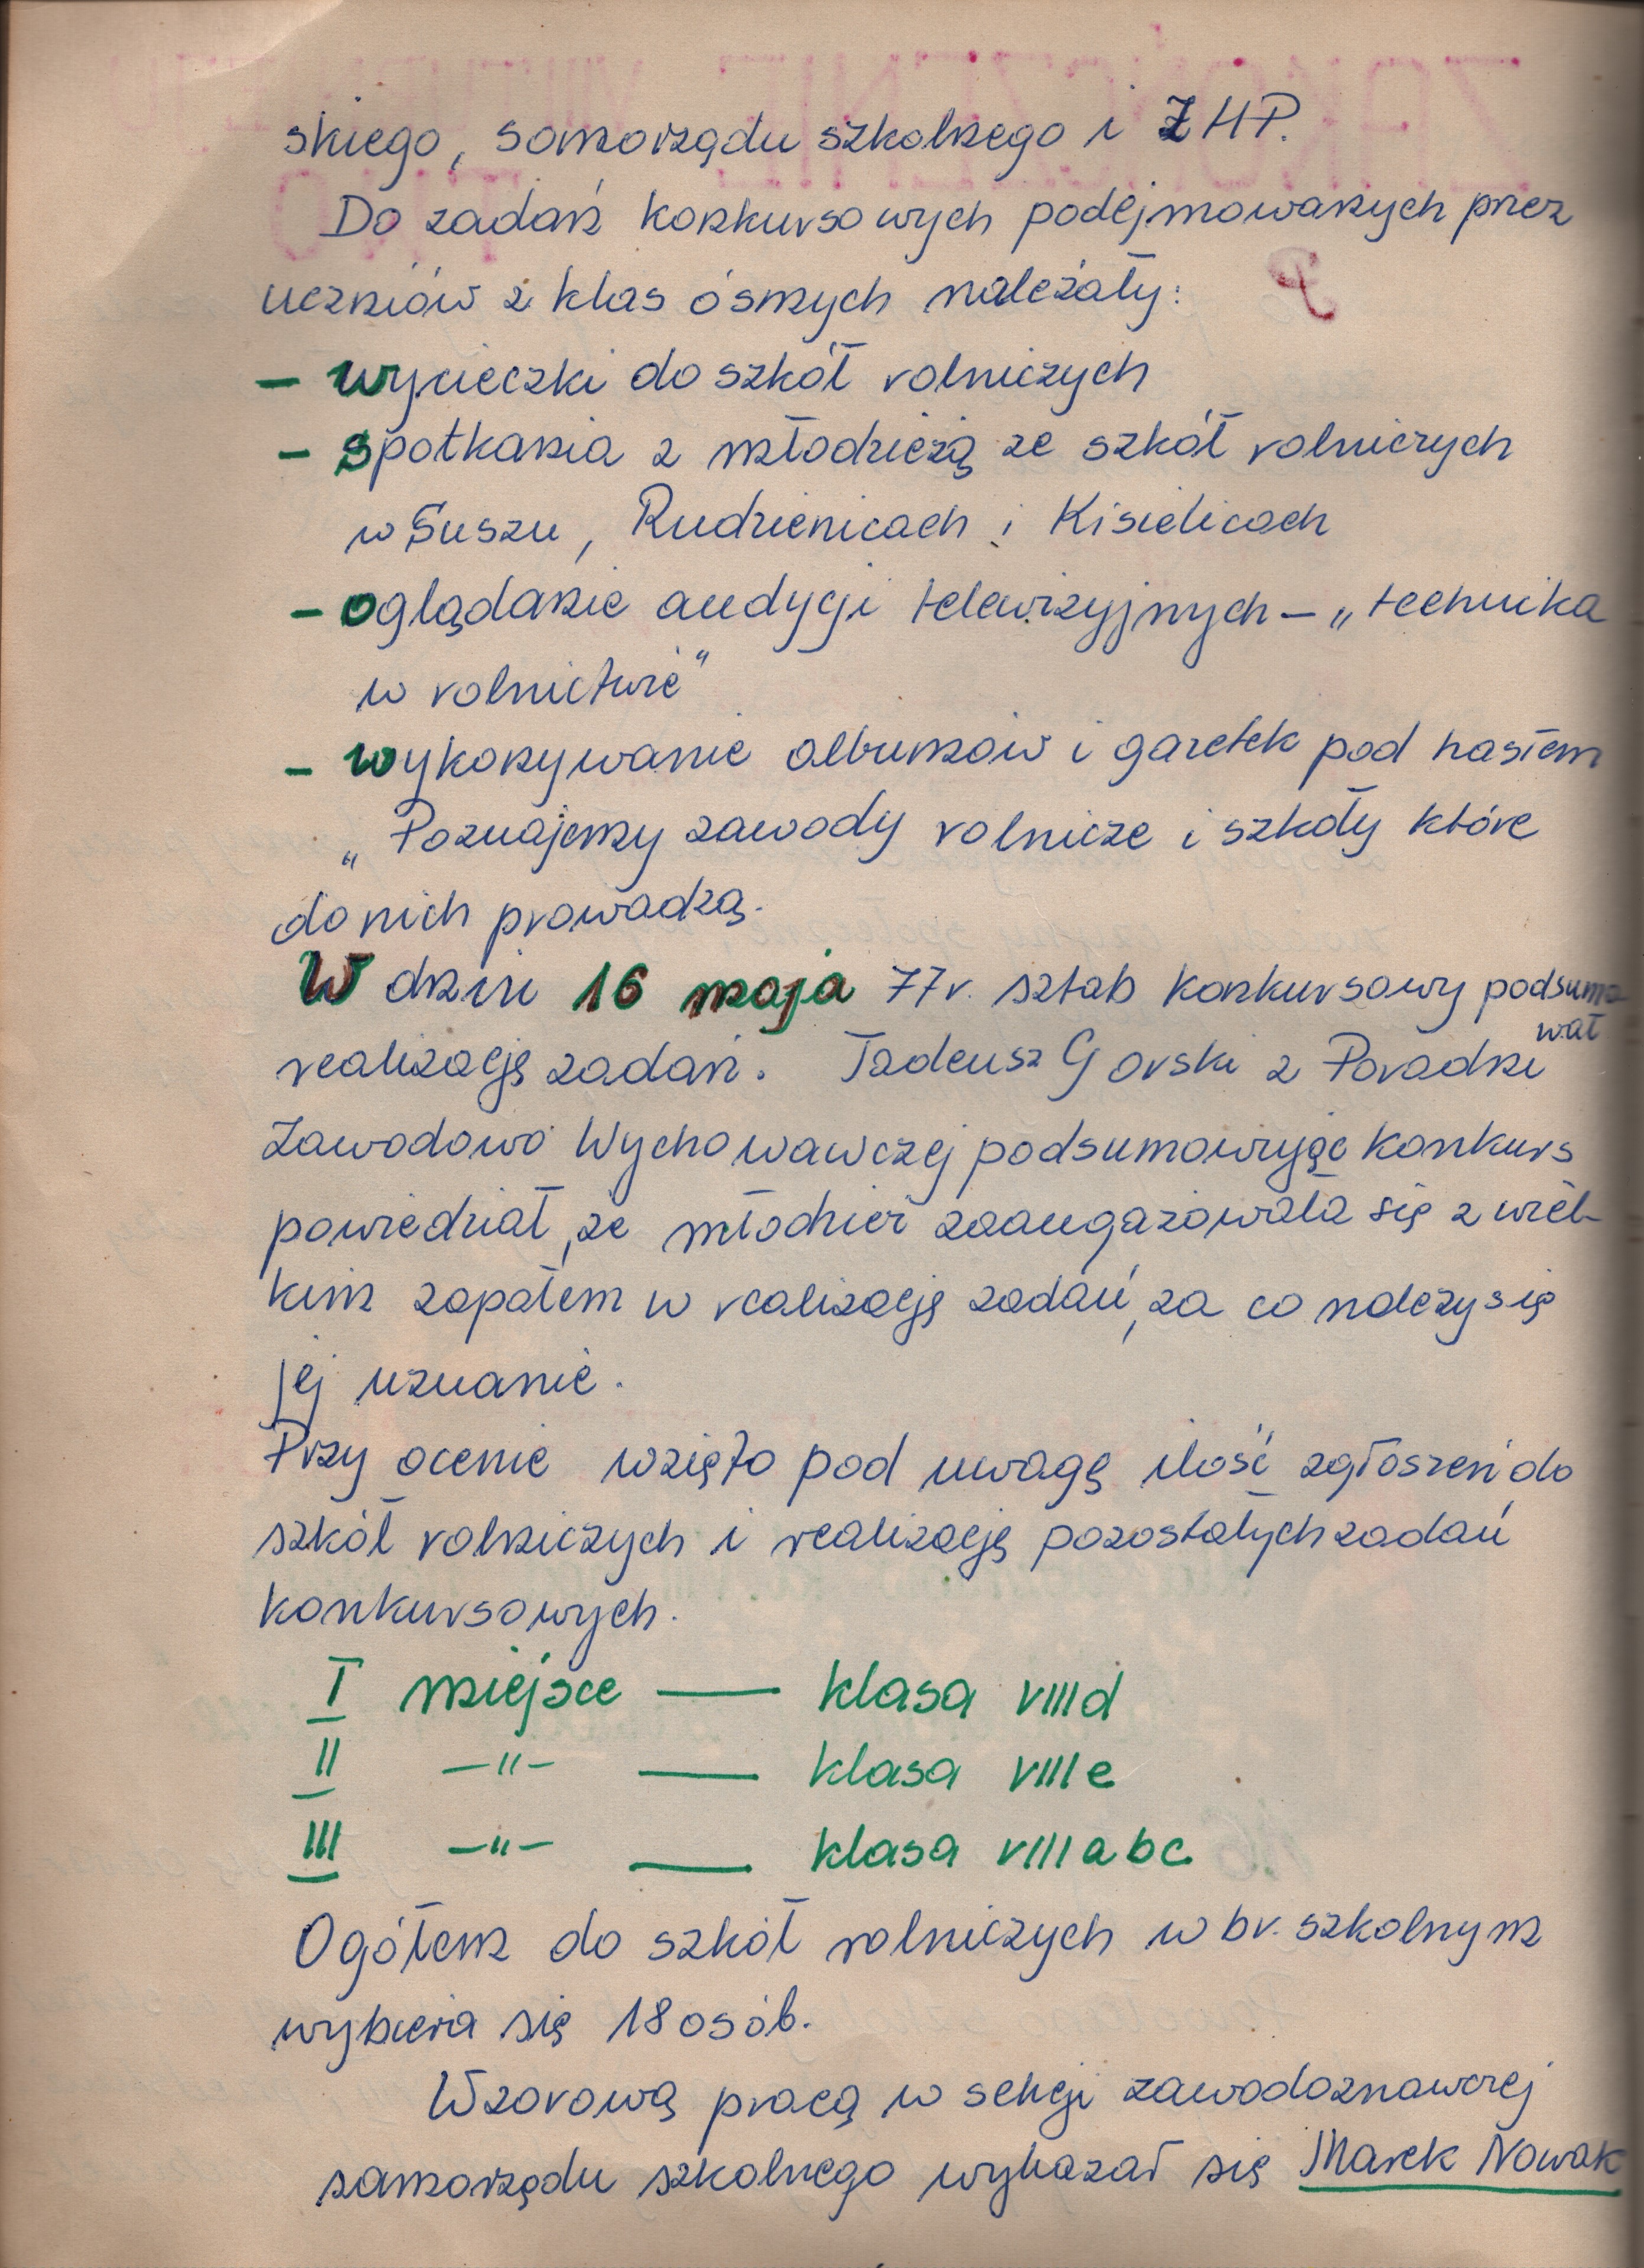 skiego, samorządu szkolnego i ZHP.
Do zadań konkursowych podejmowanych przez
uczniów z klas ósmych należały:
– wycieczki do szkół rolniczych
– spotkania z młodzieżą ze szkół rolniczych
w Suszu, Rudzienicach i Kisielicach
– oglądanie audycji telewizyjnych – „technika
w rolnictwie"
– wykonywanie albumów i gazetek pod hasłem
„Poznajemy zawody rolnicze i szkoły które
do nich prowadzą.
W dniu 16 maja 77r. sztab konkursowy podsumo
wał
realizację zadań. Tadeusz Gorski z Poradni
Zawodowo Wychowawczej podsumowując konkurs
powiedział, że młodzież zaangażowała się z wiel-
kim zapałem w realizację zadań, za co należy się
jej uznanie.
Przy ocenie wzięto pod uwagę ilość zgłoszeń do
szkół rolniczych i realizację pozostałych zadań
konkursowych.
I miejsce — klasa VIII d
II —"— — klasa VIII e
III —"— — klasa VIII a b c
Ogółem do szkół rolniczych w br. szkolnym
wybiera się 18 osób.
Wzorową pracą w sekcji zawodoznawczej
samorządu szkolnego wykazał się Marek Nowak